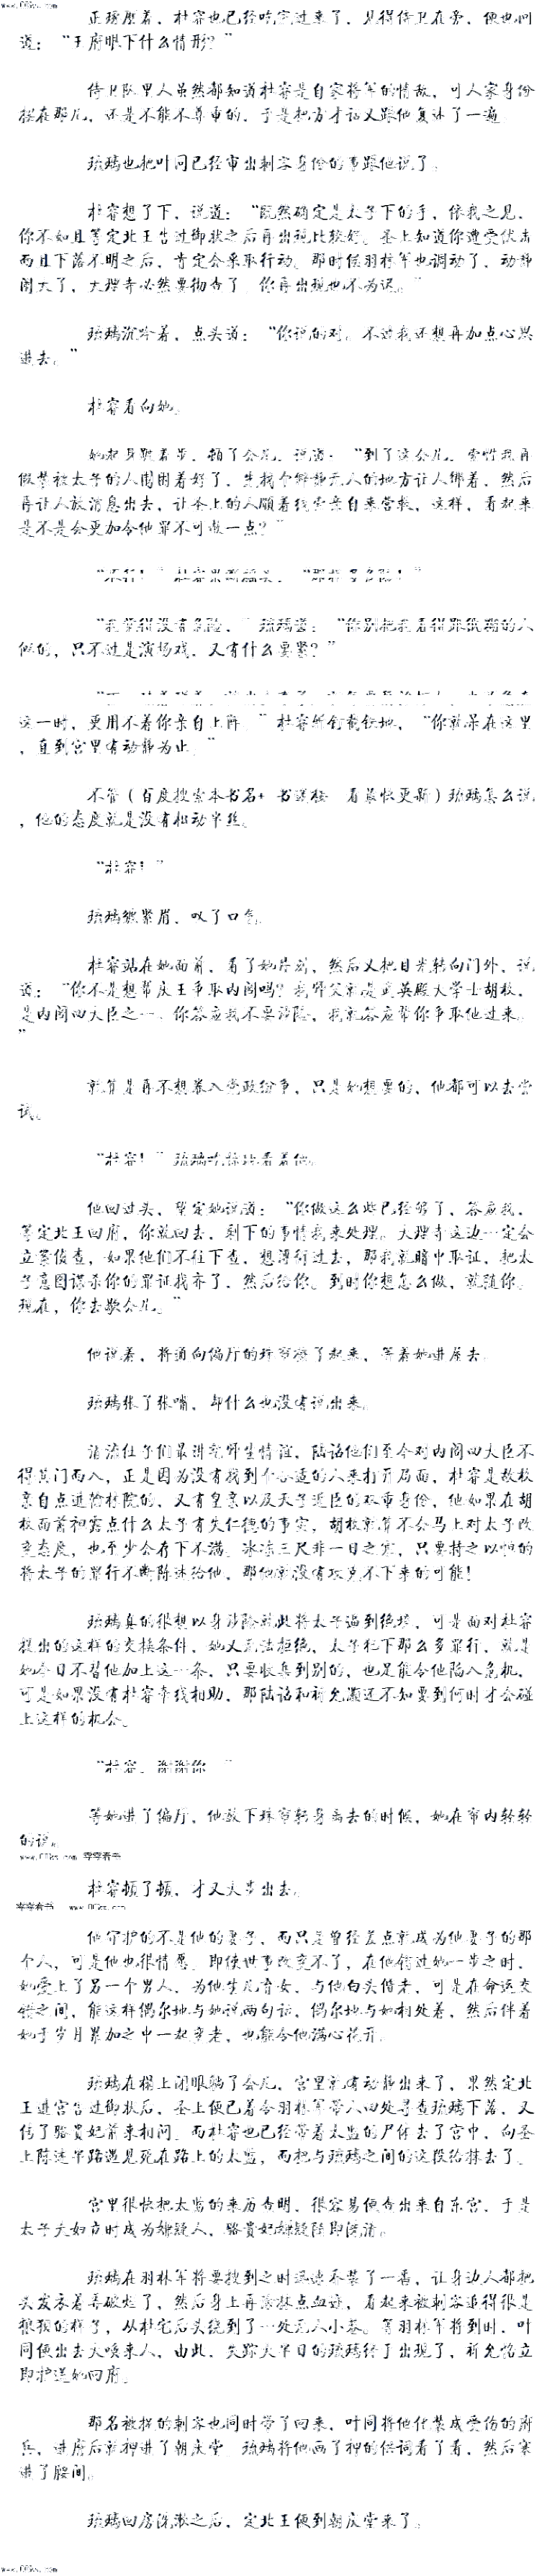 www.00ks.com
正琢磨着，杜睿也已经吃完过来了，见得侍卫在旁，便也问
道：“王府眼下什么情形？”
侍卫队里人虽然都知道杜睿是自家将军的情敌，可人家身份
摆在那儿，还是不能不尊重的，于是把方才话又跟他复述了一遍
琉璃也把叶同已经审出刺客身份的事跟他说了。
杜睿想了下，说道：“既然确定是太子下的手，依我之见，
你不如且等定北王告过御状之后再出现比较好。圣上知道你遭受伏击
而且下落不明之后，肯定会采取行动。那时候羽林军也调动了，动静
闹大了，大理寺必然要彻查了，你再出现也不为迟。”
琉璃沉吟着，点头道：“你说的对。不过我还想再加点心思
进去。”
杜睿看向她。
她起身踱着步，顿了会儿，说道：“到了这会儿，索性我再
假装被太子的人围困着好了，先找个僻静无人的地方让人绑着，然后
再让人放消息出去，让圣上的人顺着线索亲自来营救，这样，看起来
是不是会更加令他罪不可赦一点？”
“我觉得没有危险，”琉璃道：“你别把我看得跟纸糊的人
似的，只不过是演场戏，又有什么要紧？”
这一时，更用不着你亲自上阵。”杜睿斩钉截铁地，“你就呆在这里
，直到宫里有动静为止。”
不管（百度搜索本书名+ 书迷楼 看最快更新）琉璃怎么说
，他的态度就是没有松动半丝。
“杜睿！”
琉璃蹙紧眉，叹了口气。
杜睿站在她面前，看了她片刻，然后又把目光转向门外，说
道：“你不是想帮庆王争取内阁吗？我师父就是武英殿大学士胡枚，
是内阁四大臣之一，你答应我不要涉险，我就答应帮你争取他过来。
”
就算是再不想卷入党政纷争，只是她想要的，他都可以去尝
试。
“杜睿！”琉璃吃惊地看着他。
他回过头，望定她说道：“你做这么些已经够了，答应我，
等定北王回府，你就回去，剩下的事情我来处理。大理寺这边一定会
立案侦查，如果他们不往下查，想蒙行过去，那我就暗中取证，把太
子意图谋杀你的罪证找齐了，然后给你。到时你想怎么做，就随你。
现在，你去歇会儿。”
他说着，将通向偏厅的珠帘撩了起来，等着她进屋去。
琉璃张了张嘴，却什么也没有说出来。
清流仕子们最讲究师生情谊，陆诘他们至今对内阁四大臣不
得其门而入，正是因为没有找到个合适的人来打开局面，杜睿是胡枚
亲自点进翰林院的，又有皇亲以及天子近臣的双重身份，他如果在胡
枚面前神露点什么太子有失仁德的事实，胡枚就算不会马上对太子改
变态度，也至少会存下不满。冰冻三尺非一日之寒，只要持之以恒的
将太子的罪行不断陈述给他，那他就没有攻克不下来的可能！
琉璃真的很想以身涉险就此将太子逼到绝境，可是面对杜睿
提出的这样的交换条件，她又无法拒绝，太子犯下那么多罪行，就是
她今日不替他加上这一条，只要收集到别的，也是能令他陷入危机，
可是如果没有杜睿牵线相助，那陆诘和祈允灏还不知要到何时才会碰
上这样的机会。
“杜睿，谢谢你。”
等她进了偏厅，他放下珠帘转身离去的时候，她在帘内轻轻
的说。
www.00ks.com 零零看书
杜睿顿了顿，才又大步出去。
零零看书 www.00ks.com
他守护的不是他的妻子，而只是曾经差点就成为他妻子的那
个人，可是他也很情愿。即使世事改变不了，在他错过她一步之时，
她爱上了另一个男人，为他生儿育女，与他白头偕老，可是在命运交
错之间，能这样偶尔地与她说两句话，偶尔地与她相处着，然后伴着
她于岁月累加之中一起变老，也能令他满心花开。
琉璃在榻上闭眼躺了会儿，宫里就有动静出来了，果然定北
王进宫告过御状后，圣上便已着令羽林军带人四处寻查琉璃下落，又
传了骆贵妃前来相问。而杜睿也已经带着太监的尸体去了宫中，向圣
上陈述半路遇见死在路上的太监，而把与琉璃之间的这段给抹去了。
宫里很快把太监的来历查明，很容易便查出来自东宫，于是
太子夫妇立时成为嫌疑人，骆贵妃嫌疑随即洗清。
琉璃在羽林军将要搜到之时迅速乔装了一番，让身边人都把
头发衣着弄破烂了，然后身上再落抹点血迹，看起来被刺客追得很是
狼狈的样子，从杜宅后头绕到了一处无人小巷。等羽林军将到时，叶
同便出去大唤来人，由此，失踪大半日的琉璃终于出现了，祈允恪立
即护送她回府。
那名被捉的刺客也同时带了回来，叶同将他化装成受伤的府
兵，进府后就押进了朝庆堂。琉璃将他画了押的供词看了看，然后塞
进了腰间。
琉璃回房洗漱之后，定北王便到朝庆堂来了。
www.00ks.com